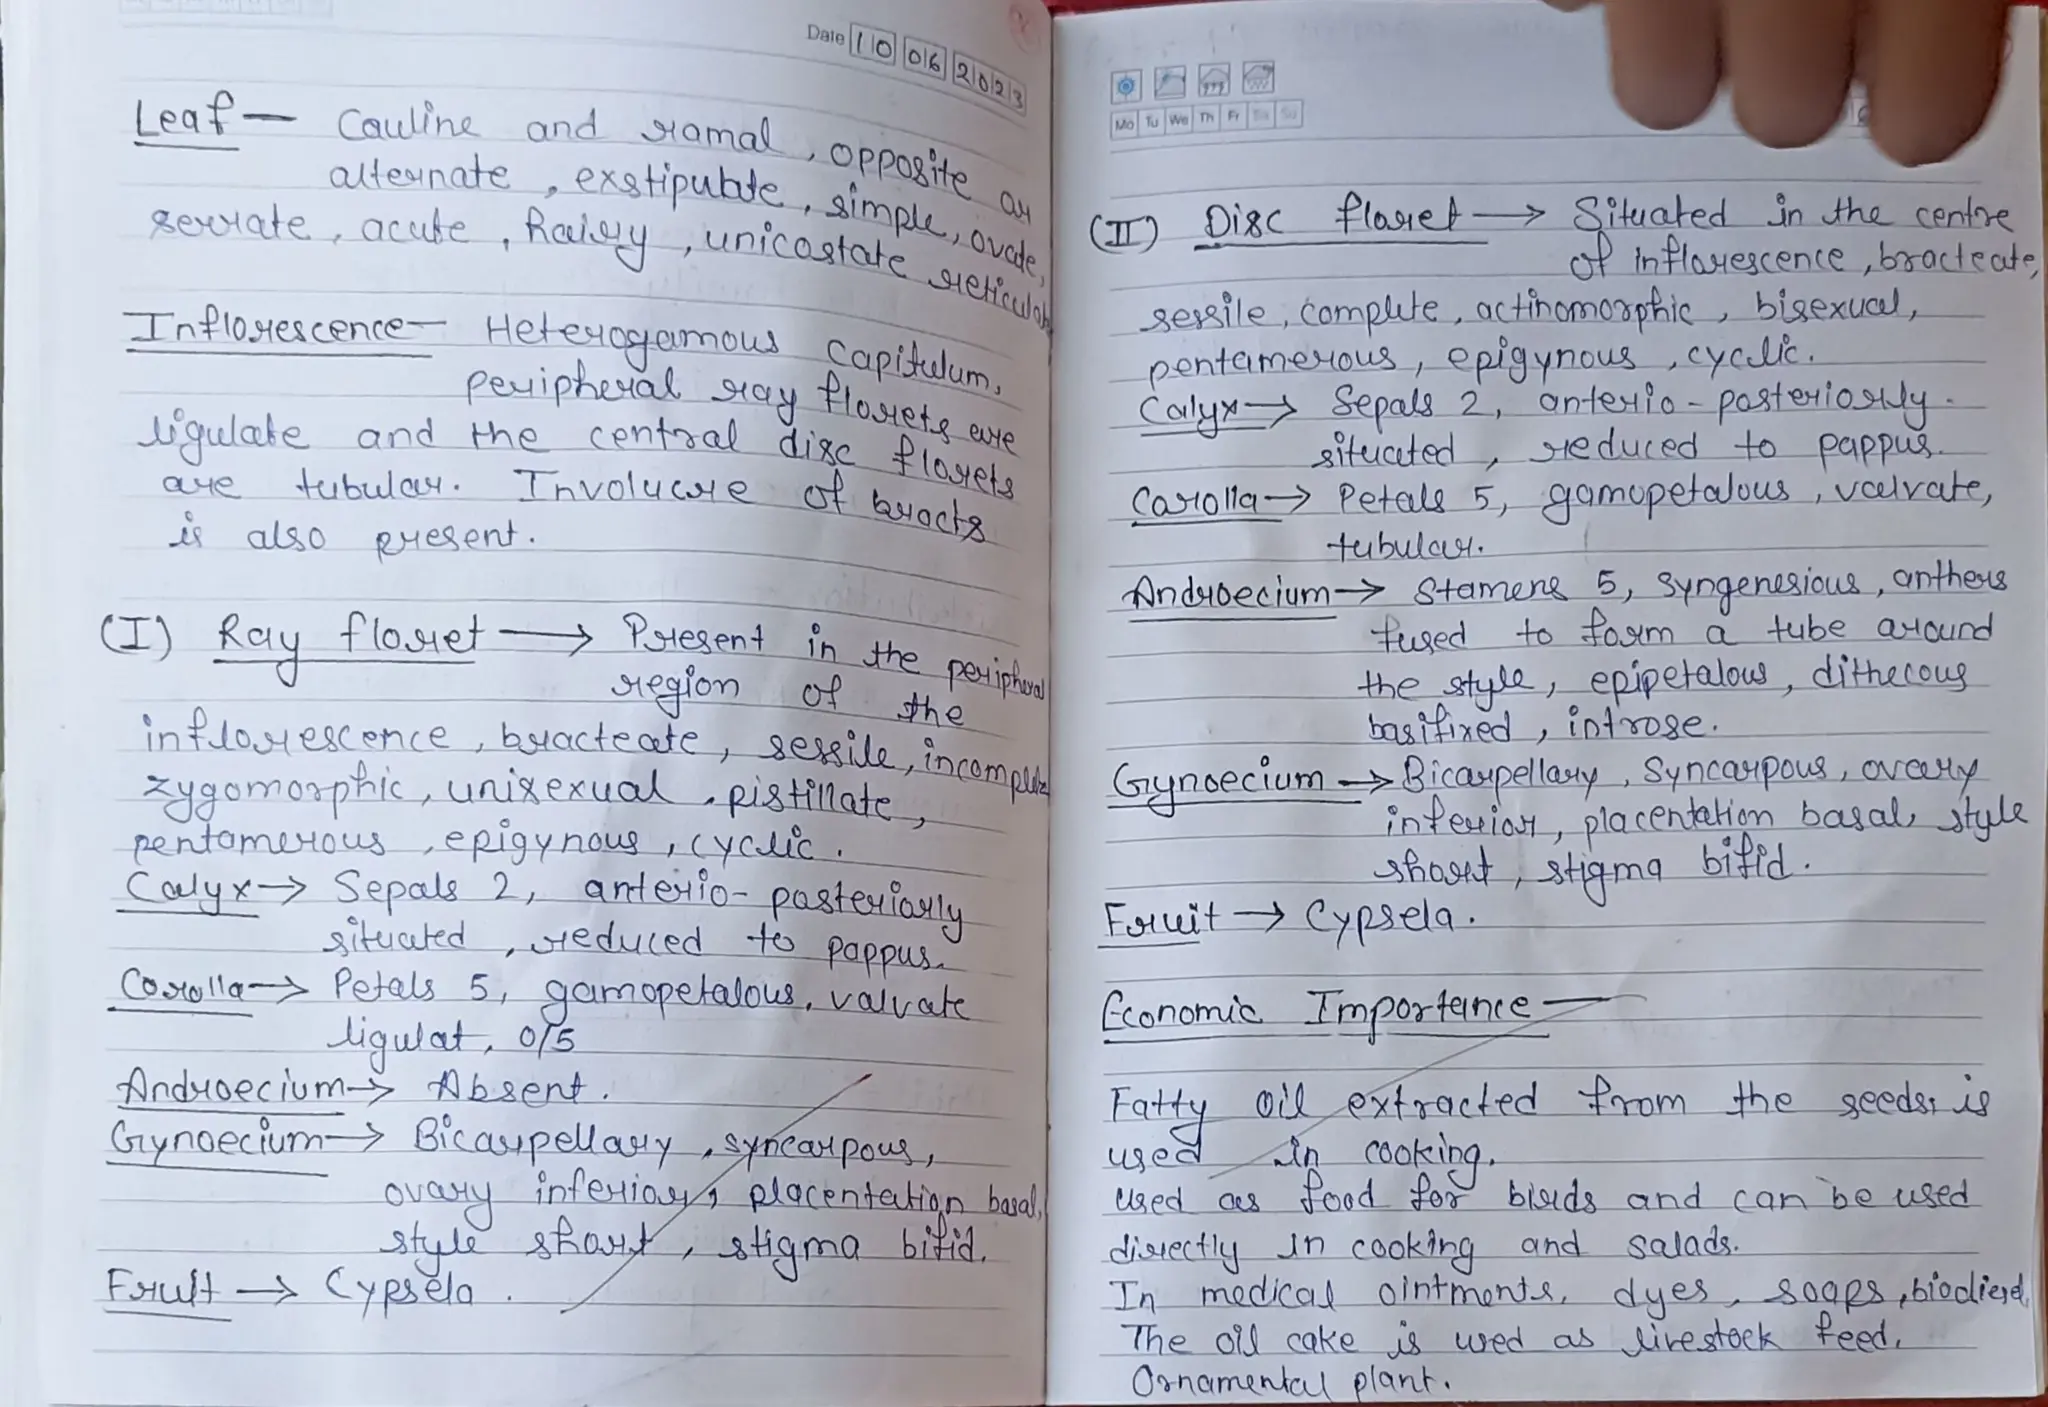 Date 10 06 2023
Leaf — Cauline and ramal, opposite or
alternate, exstipulate, simple, ovate,
serrate, acute, hairy, unicostate reticulate
Inflorescence — Heterogamous capitulum,
peripheral ray florets are
ligulate and the central disc florets
are tubular. Involucre of bracts
is also present.
(I) Ray floret → Present in the peripheral
region of the
inflorescence, bracteate, sessile, incomplete
zygomorphic, unisexual, pistillate,
pentamerous, epigynous, cyclic.
Calyx → Sepals 2, anterio-posteriorly
situated, reduced to pappus.
Corolla → Petals 5, gamopetalous, valvate
ligulat, 0/5
Androecium → Absent.
Gynoecium → Bicarpellary, syncarpous,
ovary inferior, placentation basal,
style short, stigma bifid.
Fruit → Cypsela.
Mo Tu We Th Fr Sa Su
(II) Disc floret → Situated in the centre
of inflorescence, bracteate,
sessile, complete, actinomorphic, bisexual,
pentamerous, epigynous, cyclic.
Calyx → Sepals 2, anterio-posteriorly.
situated, reduced to pappus.
Corolla → Petals 5, gamopetalous, valvate,
tubular.
Androecium → Stamens 5, Syngenesious, anthers
fused to form a tube around
the style, epipetalous, dithecous
basifixed, introse.
Gynoecium → Bicarpellary, Syncarpous, ovary
inferior, placentation basal, style
short, stigma bifid.
Fruit → Cypsela.
Economic Importance —
Fatty oil extracted from the seeds, is
used in cooking.
Used as food for birds and can be used
directly in cooking and salads.
In medical ointments, dyes, soaps, biodiesel,
The oil cake is used as livestock feed.
Ornamental plant.